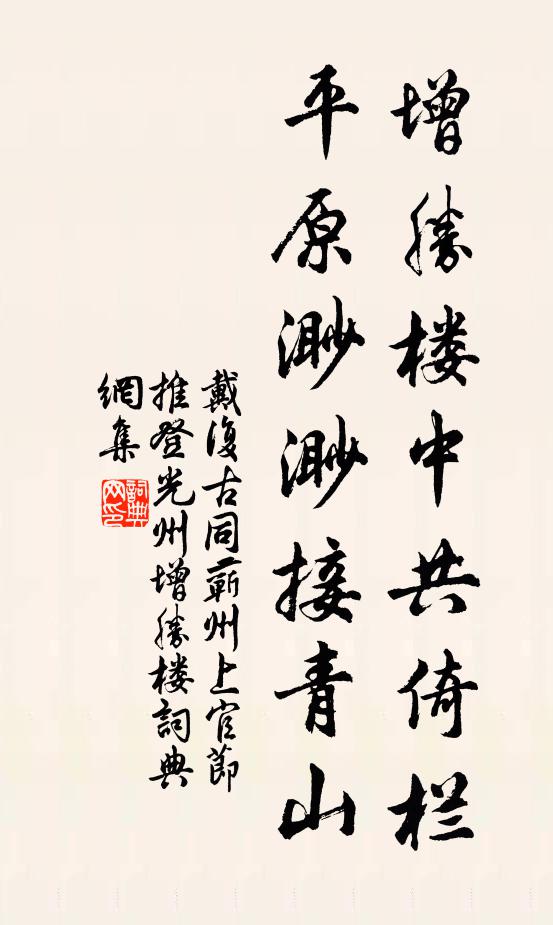 增勝楼中共倚栏
平原渺渺接青山
戴復古同蘄州上官節
推登光州增勝楼詞典
網集
詞典網印